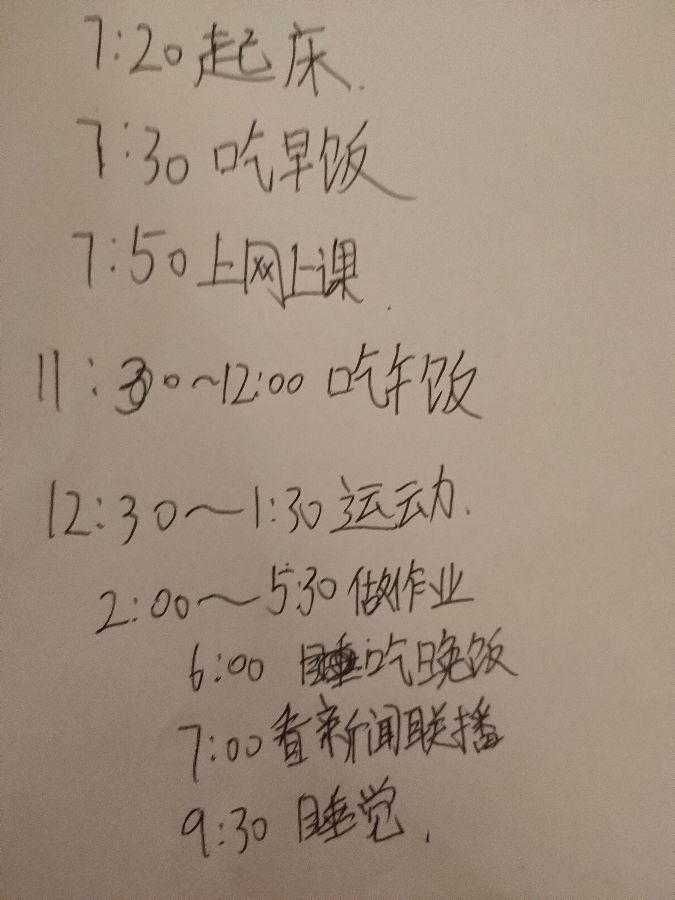 7:20 起床.
7:30 吃早饭
7:50 上网上课.
11:30~12:00 吃午饭
12:30~1:30 运动.
2:00~5:30 做作业
6:00 吃晚饭
7:00 看新闻联播
9:30 睡觉.